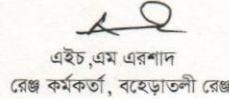 এইচ,এম এরশাদ
রেঞ্জ কর্মকর্তা, বহেড়াতলী রেঞ্জ